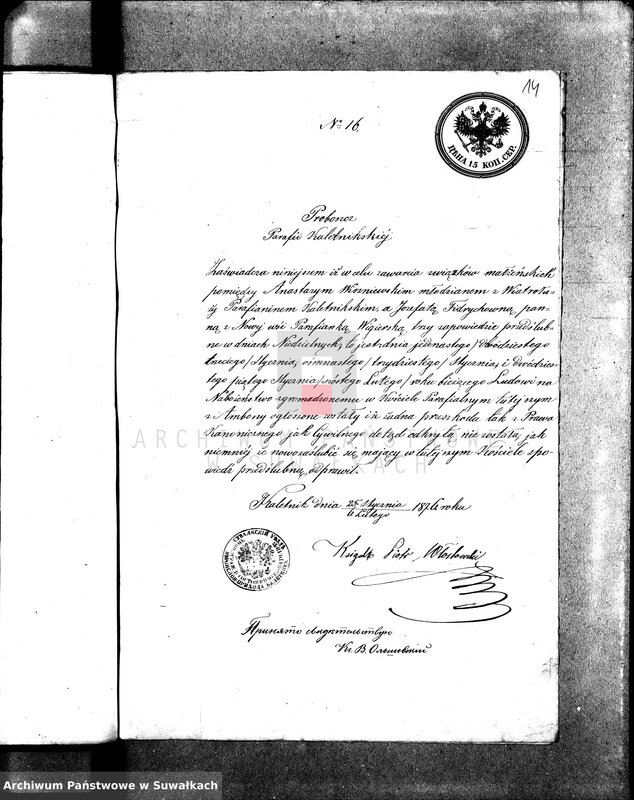 14
№ 16.
ЦѢНА 15 КОП. СЕР.
Proboszcz
Parafii Kaletnikskiéj
Zaświadcza niniejszem iż w celu zawarcia związków małżeńskich
pomiędzy Anastazym Wiszniewskim młodzianem z Wiatrołu-
ży Parafianinem Kaletnikskim, a Jozefatą Fidrychowną, pan-
ną z Nowej wsi Parafianką Wigierską trzy zapowiedzie przedślub-
ne w dniach Niedzielnych, to jest dnia jedenastego/dwódziestego
trzeciego/Stycznia, ośmnastego/trzydziestego/Stycznia, i Dwódzies-
tego piątego Stycznia/szóstego Lutego/roku bieżącego Ludowi na
Nabożeństwo zgromadzonemu w Kościele Parafialnym tutejszym
z Ambony ogłoszone zostały i iż żadna przeszkoda tak z Prawa
Kanonicznego jak Cywilnego dotąd odkrytą nie została, jak
niemniéj iż nowozaślubić się mający w tutejszym Kościele spo-
wiedź przedślubną odprawił.
Kaletnik dnia 25 Stycznia / 6 Lutego 1876 roku
Ksiądz Piotr
Принято
Кс. В. Ольшевскій
ARCHIWUM PAŃSTWOWE
W SUWAŁKACH
Archiwum Państwowe w Suwałkach